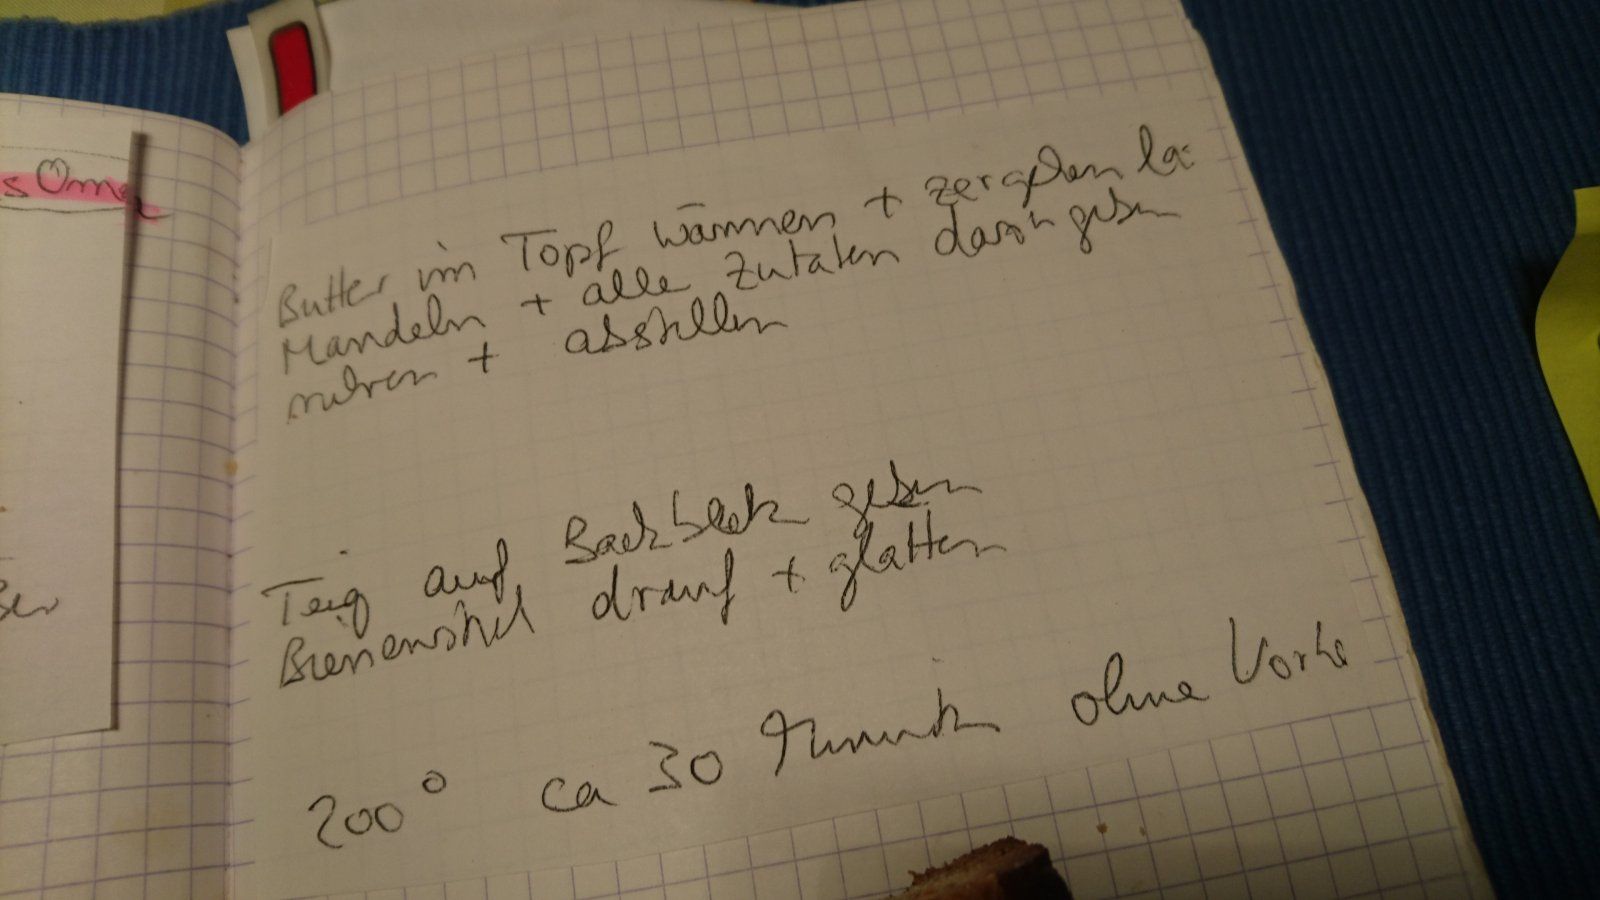 s Oma
Butter im Topf wärmen + zergehen la
Mandeln + alle Zutaten darin geben
rühren + abstellen
Teig auf Backblech geben
Bienenstich drauf + glätten
200° ca 30 Minuten ohne Vorhe